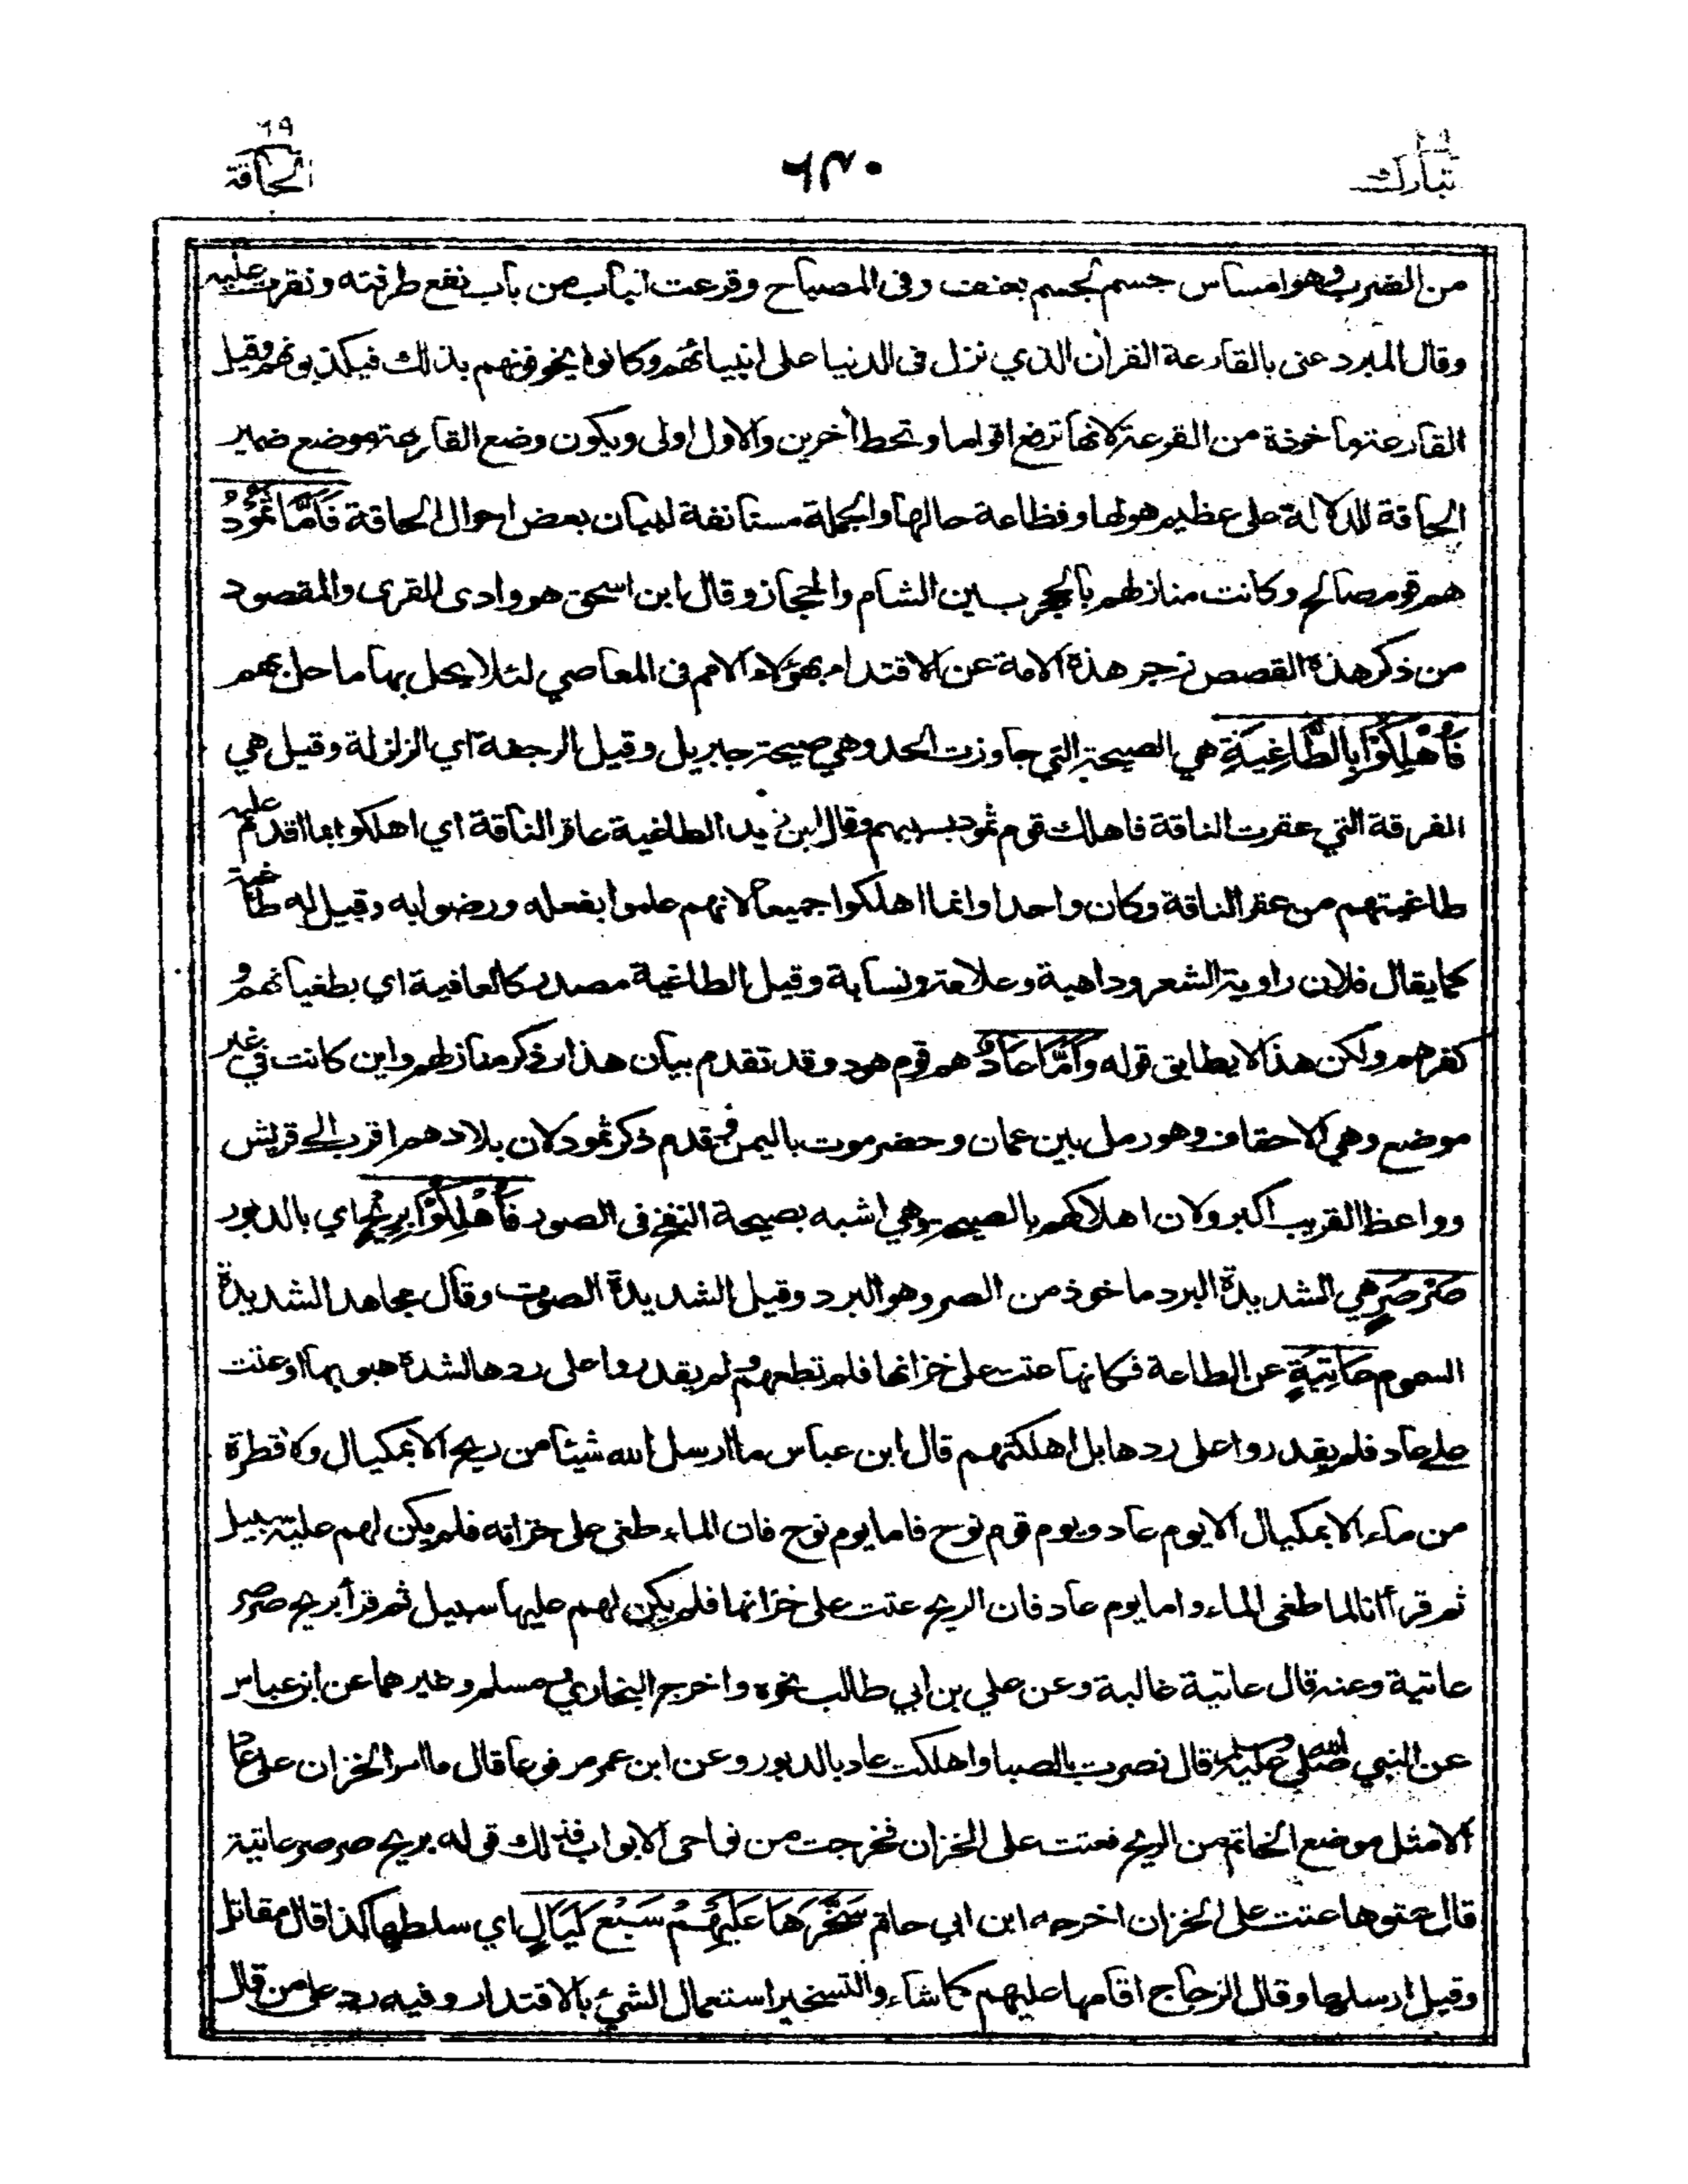 تبارك ٢٩
٦٣٠
الحاقة ٦٩
من الضرب وهو امساس جسم لجسم بعنف وفى المصباح وقرعت الباب من باب نفع طرقته ونقرت عليه
وقال المبرد عنى بالقارعة القرأن الذي نزل فى الدنيا على انبيائهم وكانوا يخوفونهم بذلك فيكذبونهم وقيل
القارعة ماخوذة من القرعة لانها ترفع اقواما وتحط أخرين والاول اولى ويكون وضع القارعة موضع ضمير
الحاقة للدلالة على عظيم هولها وفظاعة حالها والجملة مستانفة لبيان بعض احوال الحاقة فَاَمَّا ثَمُوْدُ
هم قوم صالح وكانت منازلهم بالحجر بين الشام والحجاز وقال ابن اسحق هو وادى القرى والمقصود
من ذكر هذه القصص زجر هذه الامة عن الاقتداء بهؤلاء الامم فى المعاصي لئلا يحل بها ما حل بهم
فَاُهْلِكُوْا بِالطَّاغِيَةِ هي الصيحة التي جاوزت الحد وهي صيحة جبريل وقيل الرجفة اي الزلزلة وقيل هي
الفرقة التي عقرت الناقة فاهلك قوم ثمود بسببهم وقال ابن زيد الطاغية عاقر الناقة اي اهلكوا بما اقدم عليه
طاغيتهم من عقر الناقة وكان واحدا وانما اهلكوا جميعا لانهم علموا بفعله ورضوا به وقيل له طاغية
كما يقال فلان راوية الشعر وداهية وعلامة ونسابة وقيل الطاغية مصدر كالعافية اي بطغيانهم و
كفرهم ولكن هذا لا يطابق قوله وَاَمَّا عَادٌ هم قوم هود وقد تقدم بيان هذا وذكر منازلهم واين كانت في غير
موضع وهي الاحقاف وهو رمل بين عمان وحضرموت باليمن وقدم ذكر ثمود لان بلادهم اقرب الى قريش
وواعظ القريب اكبر ولان اهلاكهم بالصيحة وهي اشبه بصيحة النفخ فى الصور فَاُهْلِكُوْا بِرِيْحٍ اي بالدبور
صَرْصَرٍ هي الشديدة البرد ماخوذ من الصر وهو البرد وقيل الشديدة الصوت وقال مجاهد الشديدة
السموم عَاتِيَةٍ عن الطاعة فكانها عتت على خزانها فلم تطعهم ولم يقدروا على ردها لشدة هبوبها او عتت
على عاد فلم يقدروا على ردها بل اهلكتهم قال ابن عباس ما ارسل الله شيئا من ريح الا بمكيال ولا قطرة
من ماء الا بمكيال الا يوم عاد ويوم قوم نوح فاما يوم نوح فان الماء طغى على خزانه فلم يكن لهم عليه سبيل
ثم قرأ انا لما طغى الماء واما يوم عاد فان الريح عتت على خزانها فلم يكن لهم عليها سبيل ثم قرأ بريح صرصر
عاتية وعنه قال عاتية غالبة وعن علي بن ابي طالب نحوه واخرج البخاري ومسلم وغيرهما عن ابن عباس
عن النبي صلى الله عليه وسلم قال نصرت بالصبا واهلكت عاد بالدبور وعن ابن عمر مرفوعا قال ما امر الخزان على عاد
الا مثل موضع الخاتم من الريح فعتت على الخزان فخرجت من نواحى الابواب فذلك قوله بريح صرصر عاتية
قال عتوها عتت على الخزان اخرجه ابن ابي حاتم سَخَّرَهَا عَلَيْهِمْ سَبْعَ لَيَالٍ اي سلطها كذا قال مقاتل
وقيل ارسلها وقال الزجاج اقامها عليهم كما شاء والتسخير استعمال الشيئ بالاقتدار وفيه رد على من قال